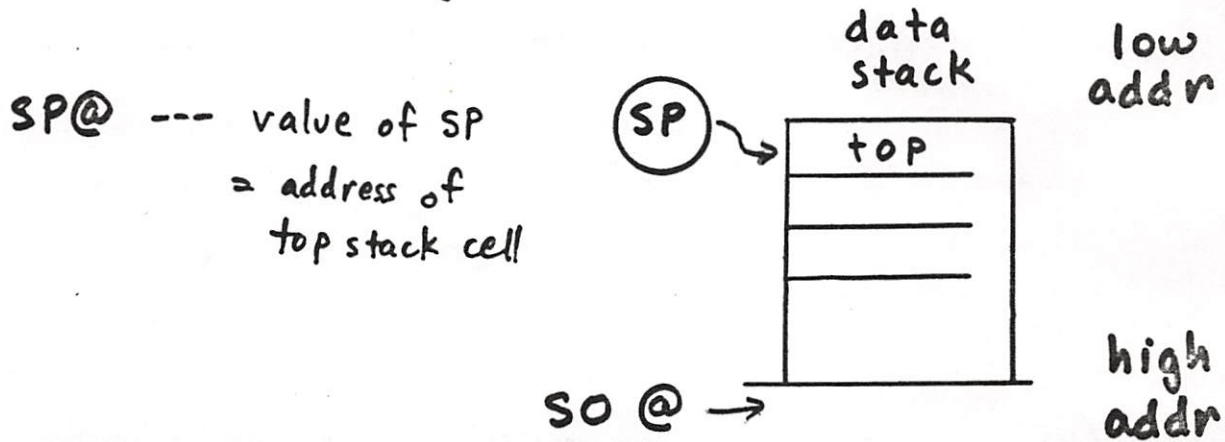 SP@ --- value of SP
= address of
top stack cell
SP
data
stack
top
low
addr
high
addr
SO @ →